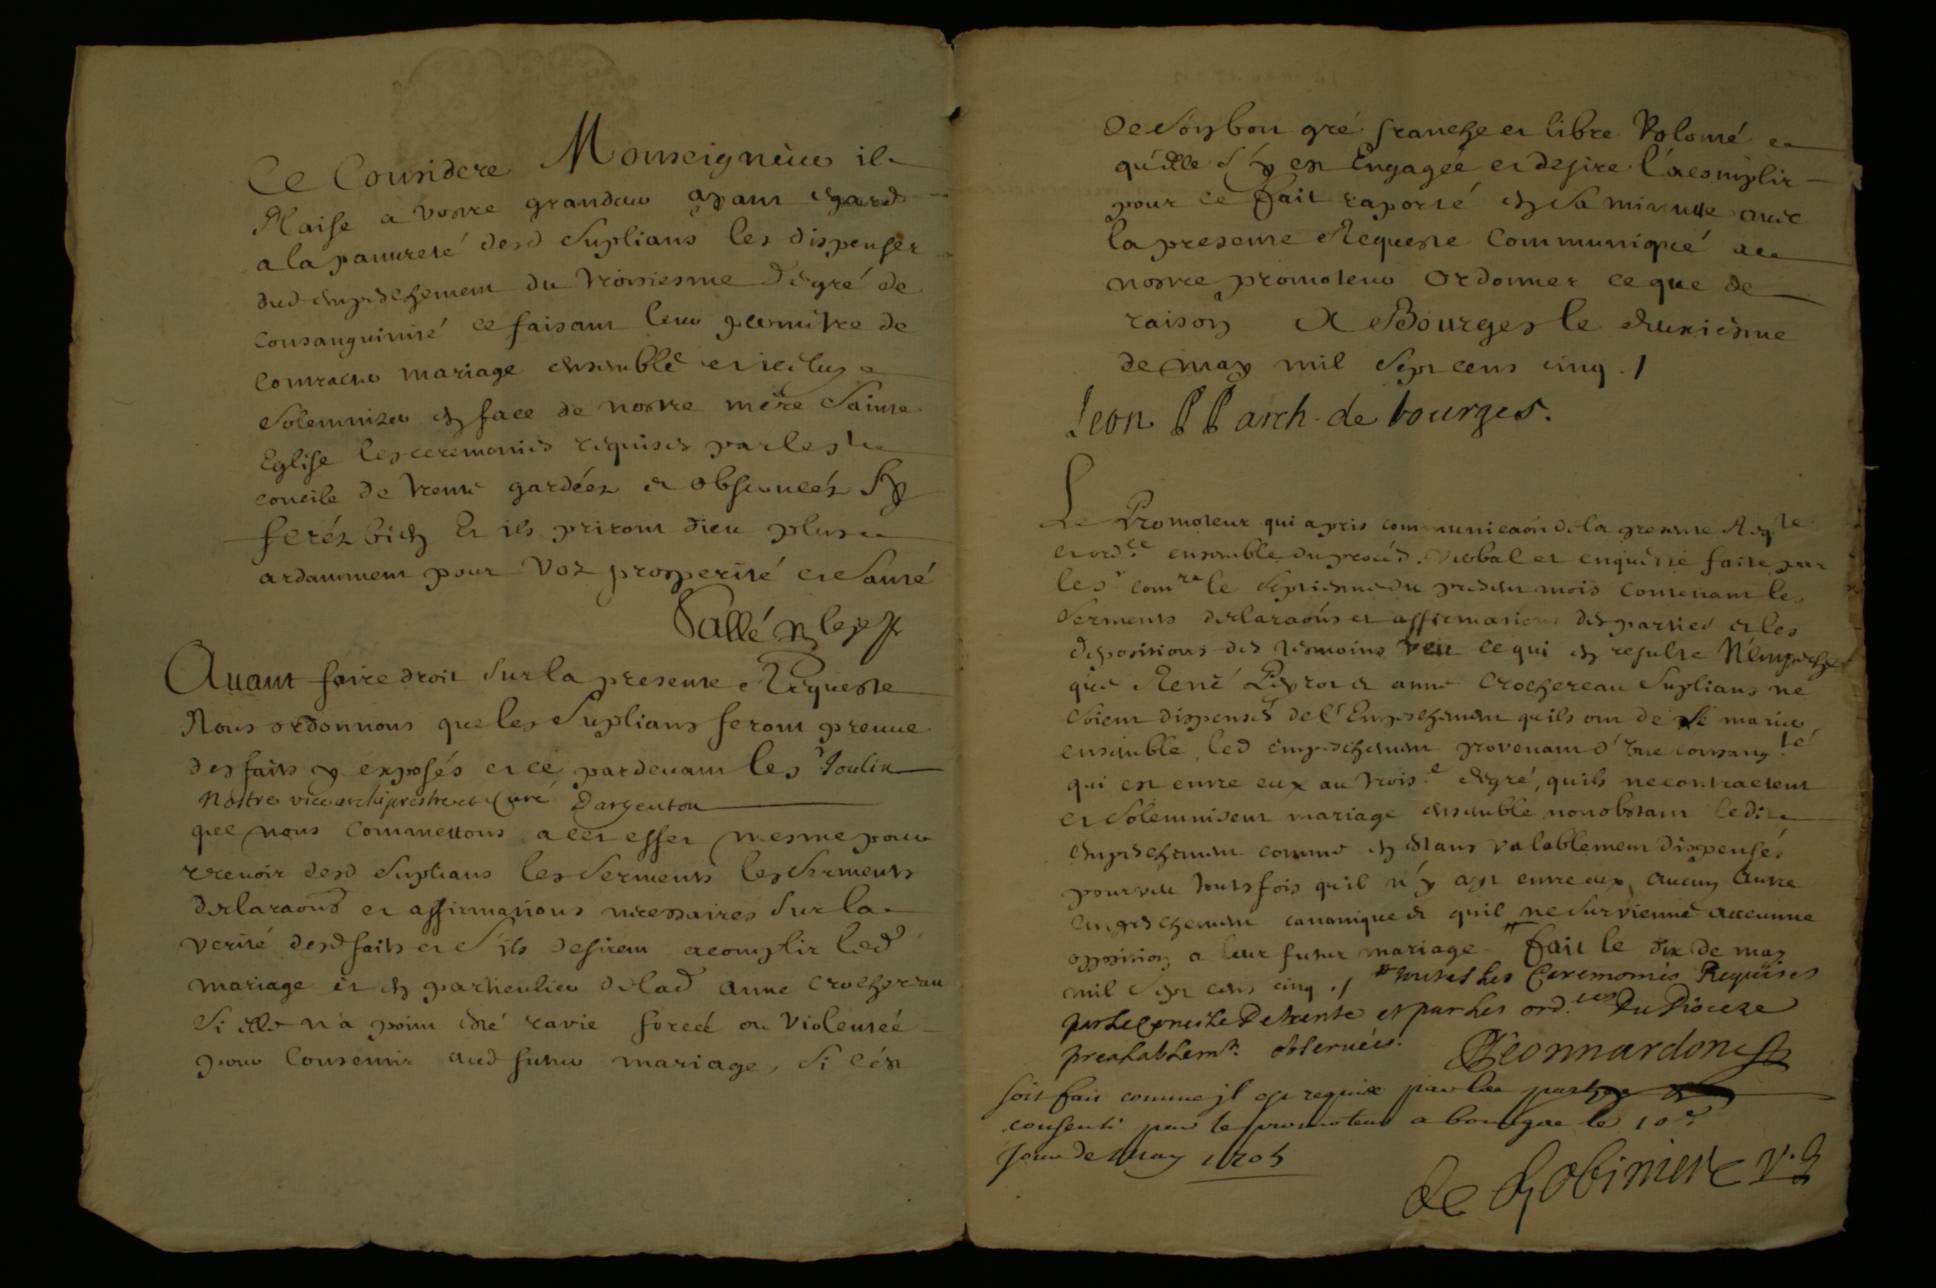 Ce Considere Monseigneur il
Plaise a vostre grandeur ayant egard
a la pauvreté desd Suplians les dispenser
dud empeschement du troisiesme degré de
consanguinité ce faisant leur permettre de
contracter mariage ensemble et iceluy
solemnizer en face de nostre mere Sainte
Eglise les ceremonies requises par le st
concile de trente gardées et observeés Sy
feréz bien Et ils priront dieu plus
ardamment pour Voz prosperité et Santé
Sallé
Avant faire droit Sur la presente Requeste
Nous ordonnons que les Suplians feront preuve
des faits y exposés et ce pardevant le sr Joulin
Nostre vice archiprestre et Curé Dargenton
que nous Commettons a cet effet mesme pour
recevoir desd Suplians les Serments les Serments
declaraons et affirmations necessaires Sur la
verité desd faits et S'ils desirent acomplir led
mariage et en particulier de lad anne Crochereau
Si elle n'a point esté ravie forcée ou Violentée
pour Consentir aud futur mariage, Si C'est
de Son bon gré franche et libre Volonté et
qu'elle S'y est Engageé et desire l'acomplir
pour ce fait raporté en Sa minutte avec
la presente Requeste Communiqué a
nostre promoteur Ordonner ce que de
raison A Bourges le deuxiesme
de may mil Sept cens cinq ./
Leon PP arch. de bourges.
Le Promoteur qui a pris communicaon de la presente Reqte
et ordce ensemble du procéd. verbal et enqueste faite par
le sr comre le Septiesme du present mois contenant les
Serments declaraons et affirmations des parties et les
depositions des tesmoins veu ce qui en resulte N'empesche
que René Peyrot et anne Crochereau Suplians ne
Soient dispensés de l'Empeschement quils ont de se marier
ensemble, led empeschement provenant d'une consangté
qui est entre eux au troise degré, quils ne contractent
et Solemnisent mariage ensemble nonobstant ledit
empeschement comme en estans valablement dispensés
pourveu toutsfois qu'il n'y ayt entre eux aucun autre
empeschement canonique et quil ne Survienne aucunne
opposition a leur futur mariage Fait le dix de may
mil Sept cens cinq ./ toutes Les Ceremonies Requises
par Le Concile De trente et par Les ord.ces Du Dioceze
prealablemt. observées.
Leonnardon
Soit fait comme il est requis par les parties
consenti par le promoteur a bourges le 10e
jour de may 1705
de Robiniere V.g